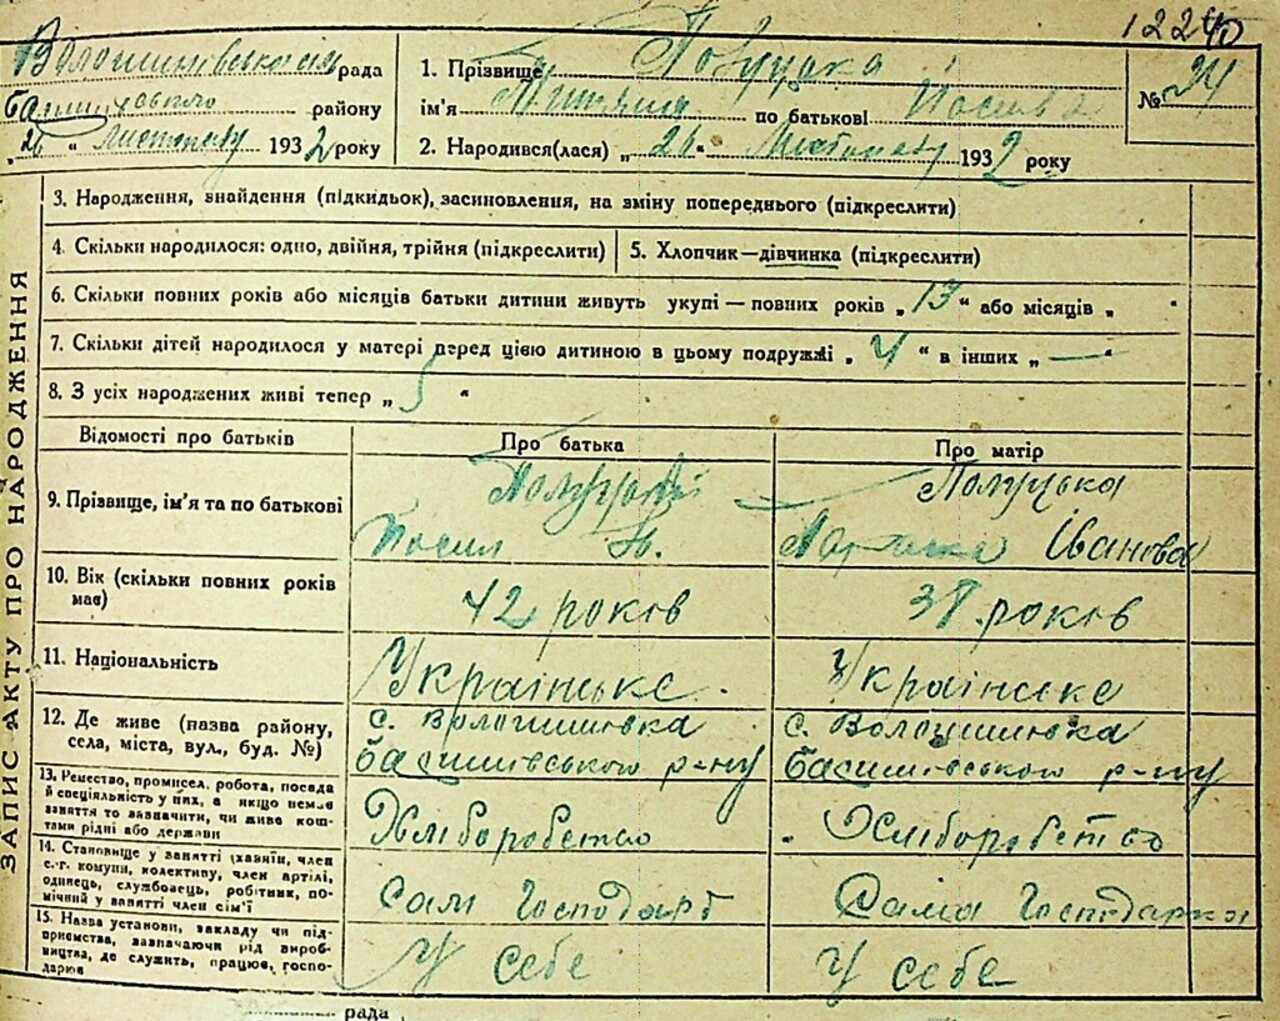 12240
Волошинівська сіл рада
району
"26" листопаду 1932 року
1. Прізвище
ім'я по батькові
2. Народився(лася) „26" Листопаду 1932 року
№ 24
ЗАПИС АКТУ ПРО НАРОДЖЕННЯ
3. Народження, знайдення (підкидьок), засиновлення, на зміну попереднього (підкреслити)
4. Скільки народилося: одно, двійня, трійня (підкреслити)
5. Хлопчик—дівчинка (підкреслити)
6. Скільки повних років або місяців батьки дитини живуть укупі — повних років „13" або місяців „ "
7. Скільки дітей народилося у матері перед цією дитиною в цьому подружжі „4" в інших „—"
8. З усіх народжених живі тепер „5"
Відомості про батьків
Про батька
Про матір
9. Прізвище, ім'я та по батькові
Полуцька
Іванова
10. Вік (скільки повних років
має)
42 років
38 років
11. Національність
Українське.
Українське
12. Де живе (назва району,
села, міста, вул., буд. №)
с. Волошинівка
с. Волошинівка
р-ну
р-ну
13. Ремество, промисел, робота, посада
й спеціяльність у них, а якщо немає
заняття то зазначити, чи живе кош-
тами рідні або держави
Хліборобство
Хліборобство
14. Становище у занятті (хазяїн, член
с.-г. комуни, колективу, член артілі,
одинець, службовець, робітник, по-
мічний у занятті член сім'ї
Сам Господарь
Сама Господарка
15. Назва установи, закладу чи під-
приємства, зазначаючи рід вироб-
ництва, де служить, працює, госпо-
дарює
У себе
У себе
рада